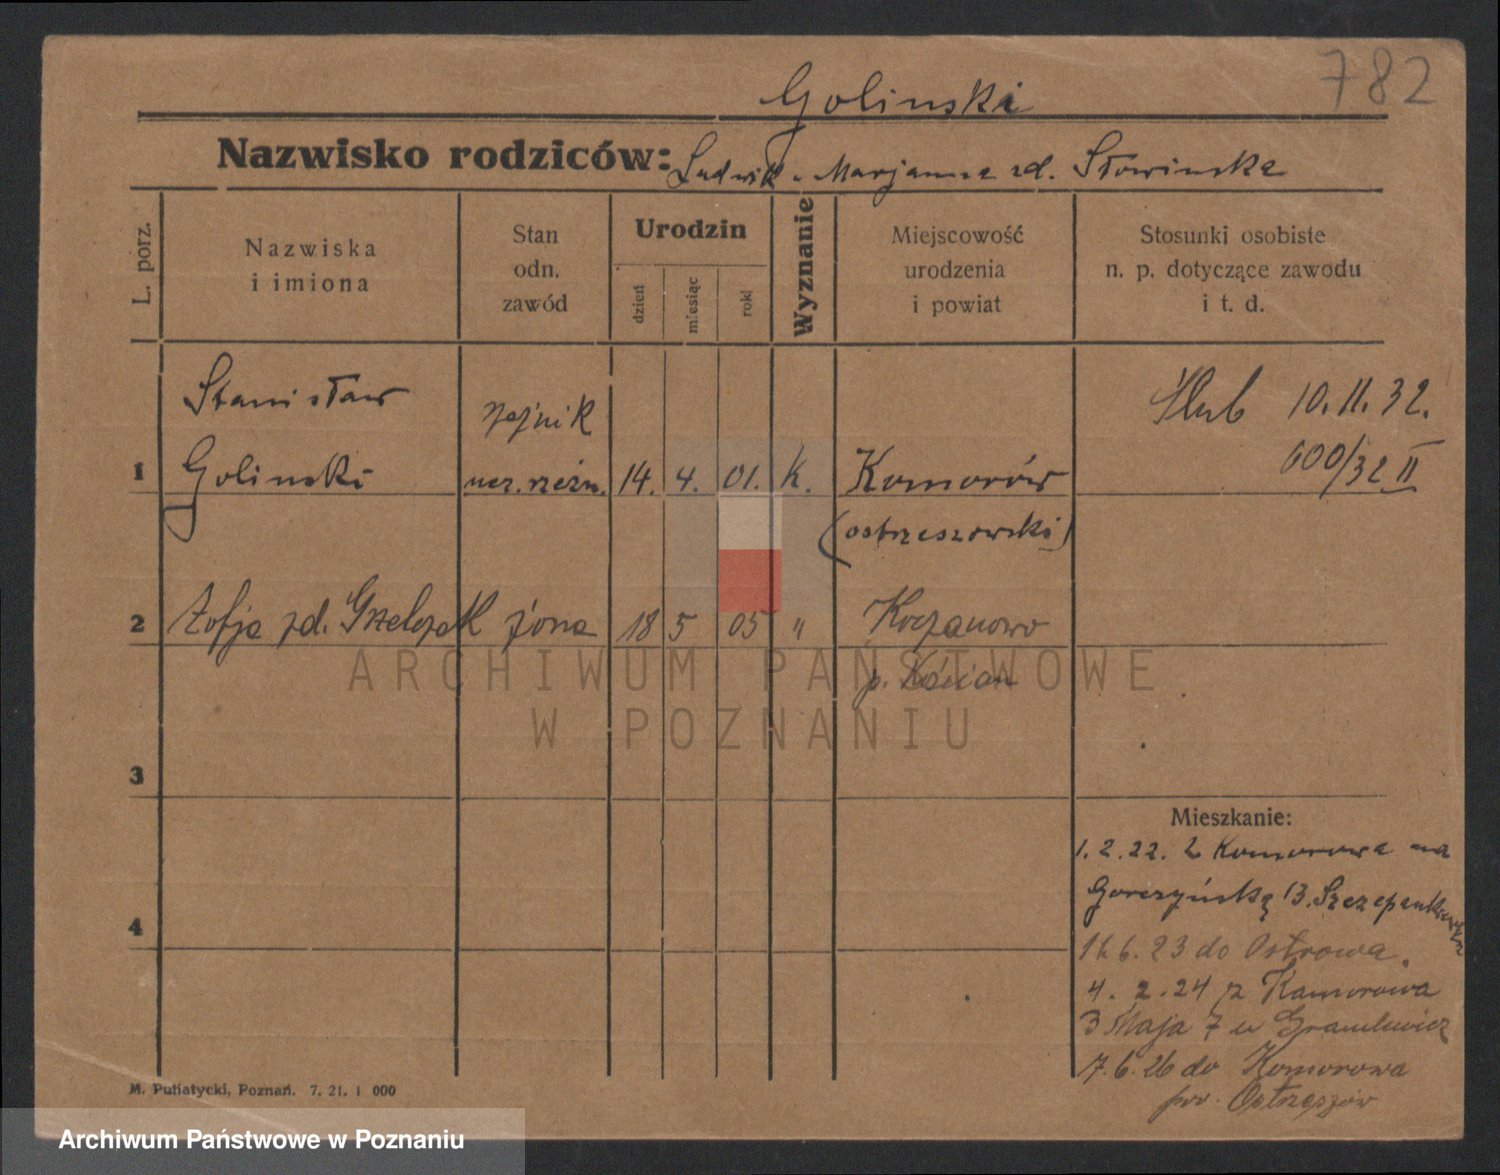 782
Golinski
Nazwisko rodziców: Ludwik Marjanna zd. Słowinska
L. porz.
Nazwiska
i imiona
Stan
odn.
zawód
Urodzin
dzień
miesiąc
rok
Wyznanie
Miejscowość
urodzenia
i powiat
Stosunki osobiste
n. p. dotyczące zawodu
i t. d.
Stanisław
Golinski
1
ucz. rzeźn. 14. 4. 01. K. Komorów
(ostrzeszowski)
Ślub 10. 11. 32.
600/32 II
2 Zofja zd. Grzelczak żona 18 5 05 " Koczanowo
p. Kościan
3
4
Mieszkanie:
1. 2. 22. z Komorowa na
Gorczyńską 13. Szczepankiewicz
6. 23 do Ostrowa.
4. 2. 24 z Komorowa
3 Maja 7 u
7. 6. 26 do Komorowa
pow. Ostrzeszów
M. Putiatycki, Poznań. 7. 21. 1 000
ARCHIWUM PAŃSTWOWE
W POZNANIU
Archiwum Państwowe w Poznaniu